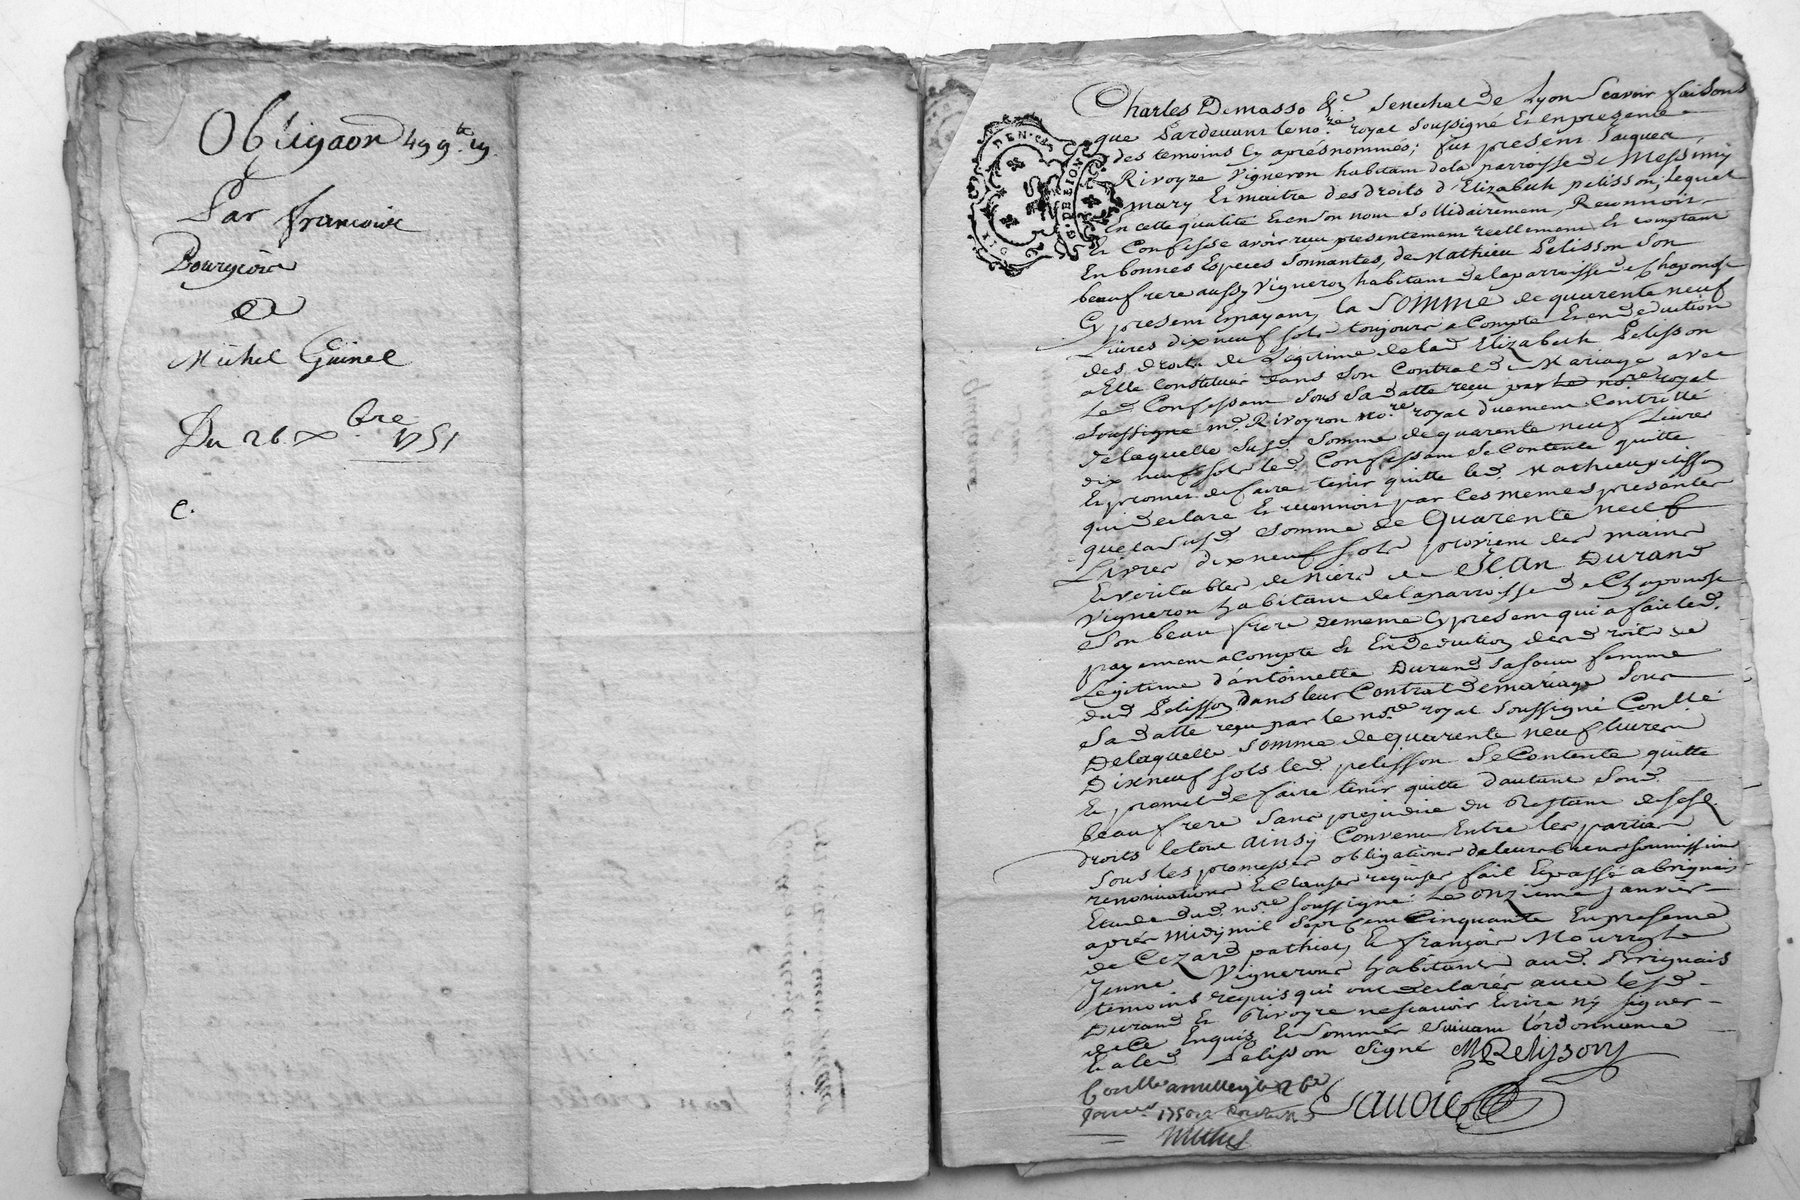 Obligaon 499tt 19
Par francoise
Bourgeois
Et
Michel Guinel
Du 26 Xbre 1751
C.
GEN. DE LION
Charles Demasso &c Senechal de Lyon Scavoir faisons
que Pardevant le nore royal soussigné Et en presence
des temoins Cy aprés nommés; fut present Jacques
Rivoyre vigneron habitant de la parroisse de Messimy
mary Et maitre des droits d'Elizabeth pelisson, lequel
En cette qualité Et en son nom sollidairement, Reconnoit
Et Confesse avoir reçu presentement reellement Et comptant
En bonnes Especes sonnantes, de Mathieu Pelisson son
beaufrere aussy vigneron habitant de la parroisse de Chaponost
Cy present Et payant, la somme de quarente neuf
Livres dix neuf sols toujours a Compte Et en deduction
des droits de Legitime de lad Elizabeth Pelisson
a Elle Constitués dans son Contrat de Mariage avec
Led Confessant sous sa datte reçu par le nore royal
soussigné me Rivoyron nore royal duement Controllé
de laquelle susd somme de quarente neuf Livres
dix neuf sols led Confessant se Contente quitte
Et promet de faire tenir quitte led. Mathieu pelisson
qui declare Et reconnoit par les memes presentes
que la susd somme de Quarente neuf
Livres dix neuf sols provient des mains
Et veritables deniers de JEAN DURAND
Vigneron habitant de la parroisse de Chaponost
son beau frere de meme Cy present qui a fait led.
payement a Compte Et En deduction des droits de
Legitime d'antoinette Durand sa soeur femme
dud Pelisson dans leur Contrat de mariage sous
sa datte reçu par le nore royal soussigné Conllé
De laquelle somme de quarente neuf livres
Dix neuf sols led. pelisson se Contente quitte
Et promet de faire tenir quitte d'autant sond
beau frere sans prejudice du Restant de sesd
droits le tout ainsy Convenu Entre les parties
sous les promesses obligations de leurs biens soumissions
renonciations Et Clauses requises fait Et passé a brignais
Etude dud. nore soussigné Le onzieme janvier
aprés midy mil sept cent Cinquante En presence
de Cezard pathiot Et françois
Jeune Vignerons habitants aud. Brignais
temoins requis qui ont declarés avec lesd
Durand Et Rivoyre ne scavoir Ecrire ny signer
de ce Enquis Et sommés suivant l'ordonnance
Et a led Pelisson signé M Pelisson